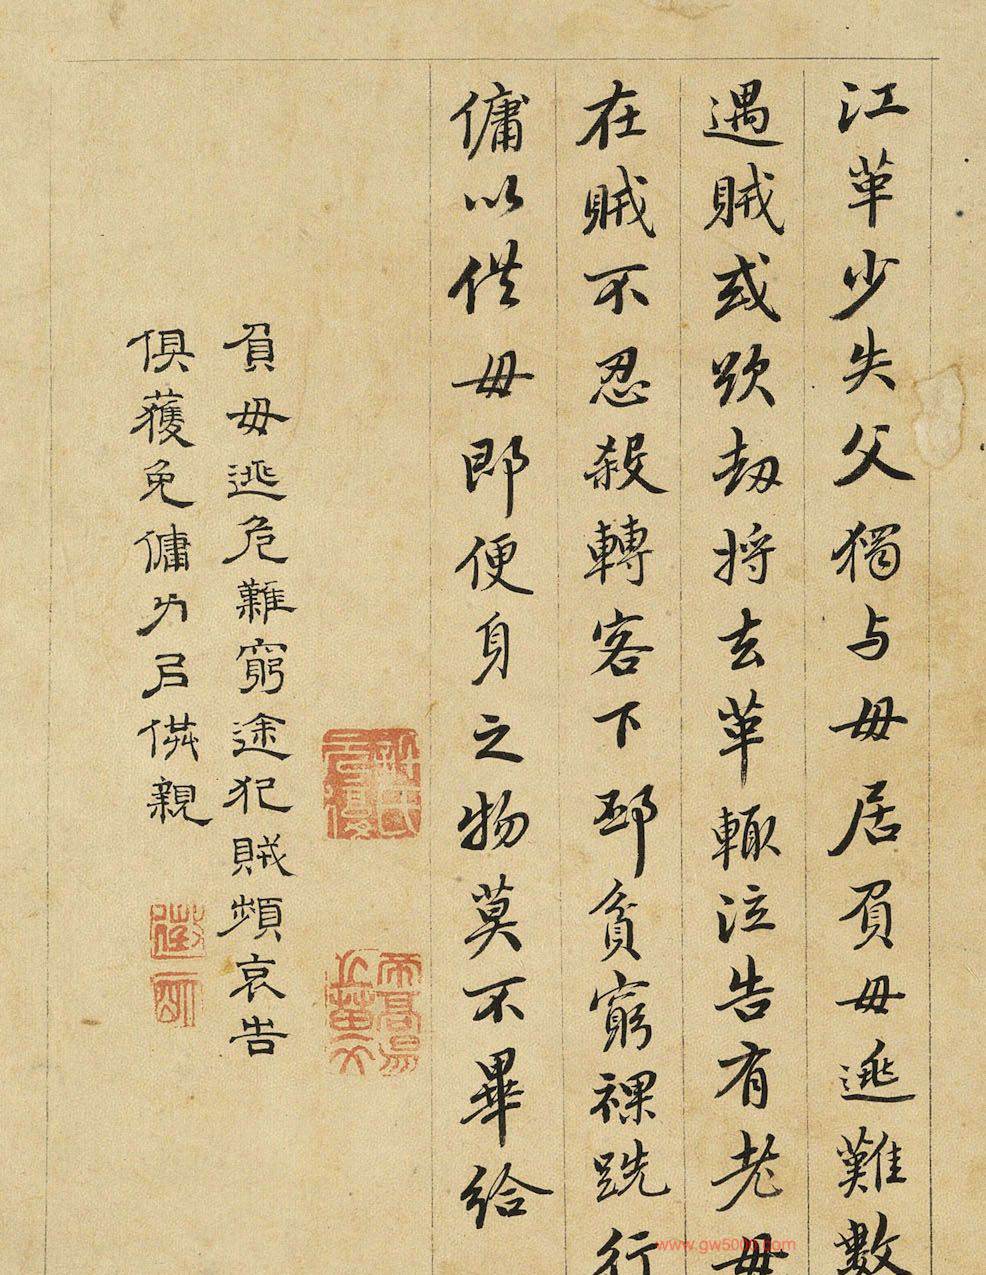 江革少失父獨与母居負母逃難數
遇賊或欲劫將去革輙泣告有老母
在賊不忍殺轉客下邳貧窮裸跣行
傭以供母即便身之物莫不畢給
負母逃危難窮途犯賊頻哀告
俱獲免傭力㠯供親
www.gw5000.com